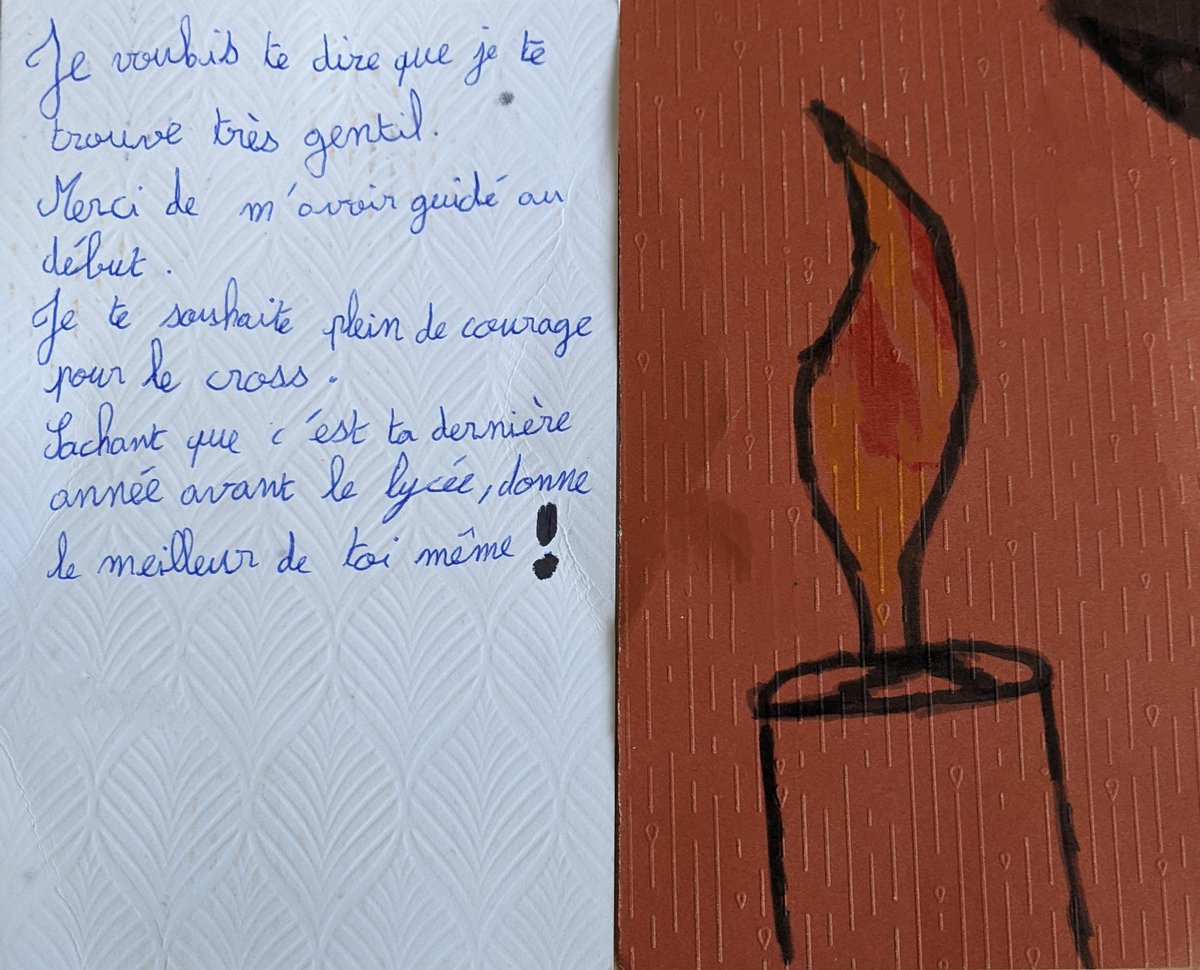 Je voulais te dire que je te
trouve très gentil.
Merci de m'avoir guidé au
début.
Je te souhaite plein de courage
pour le cross.
Sachant que c'est ta dernière
année avant le lycée, donne
le meilleur de toi même !